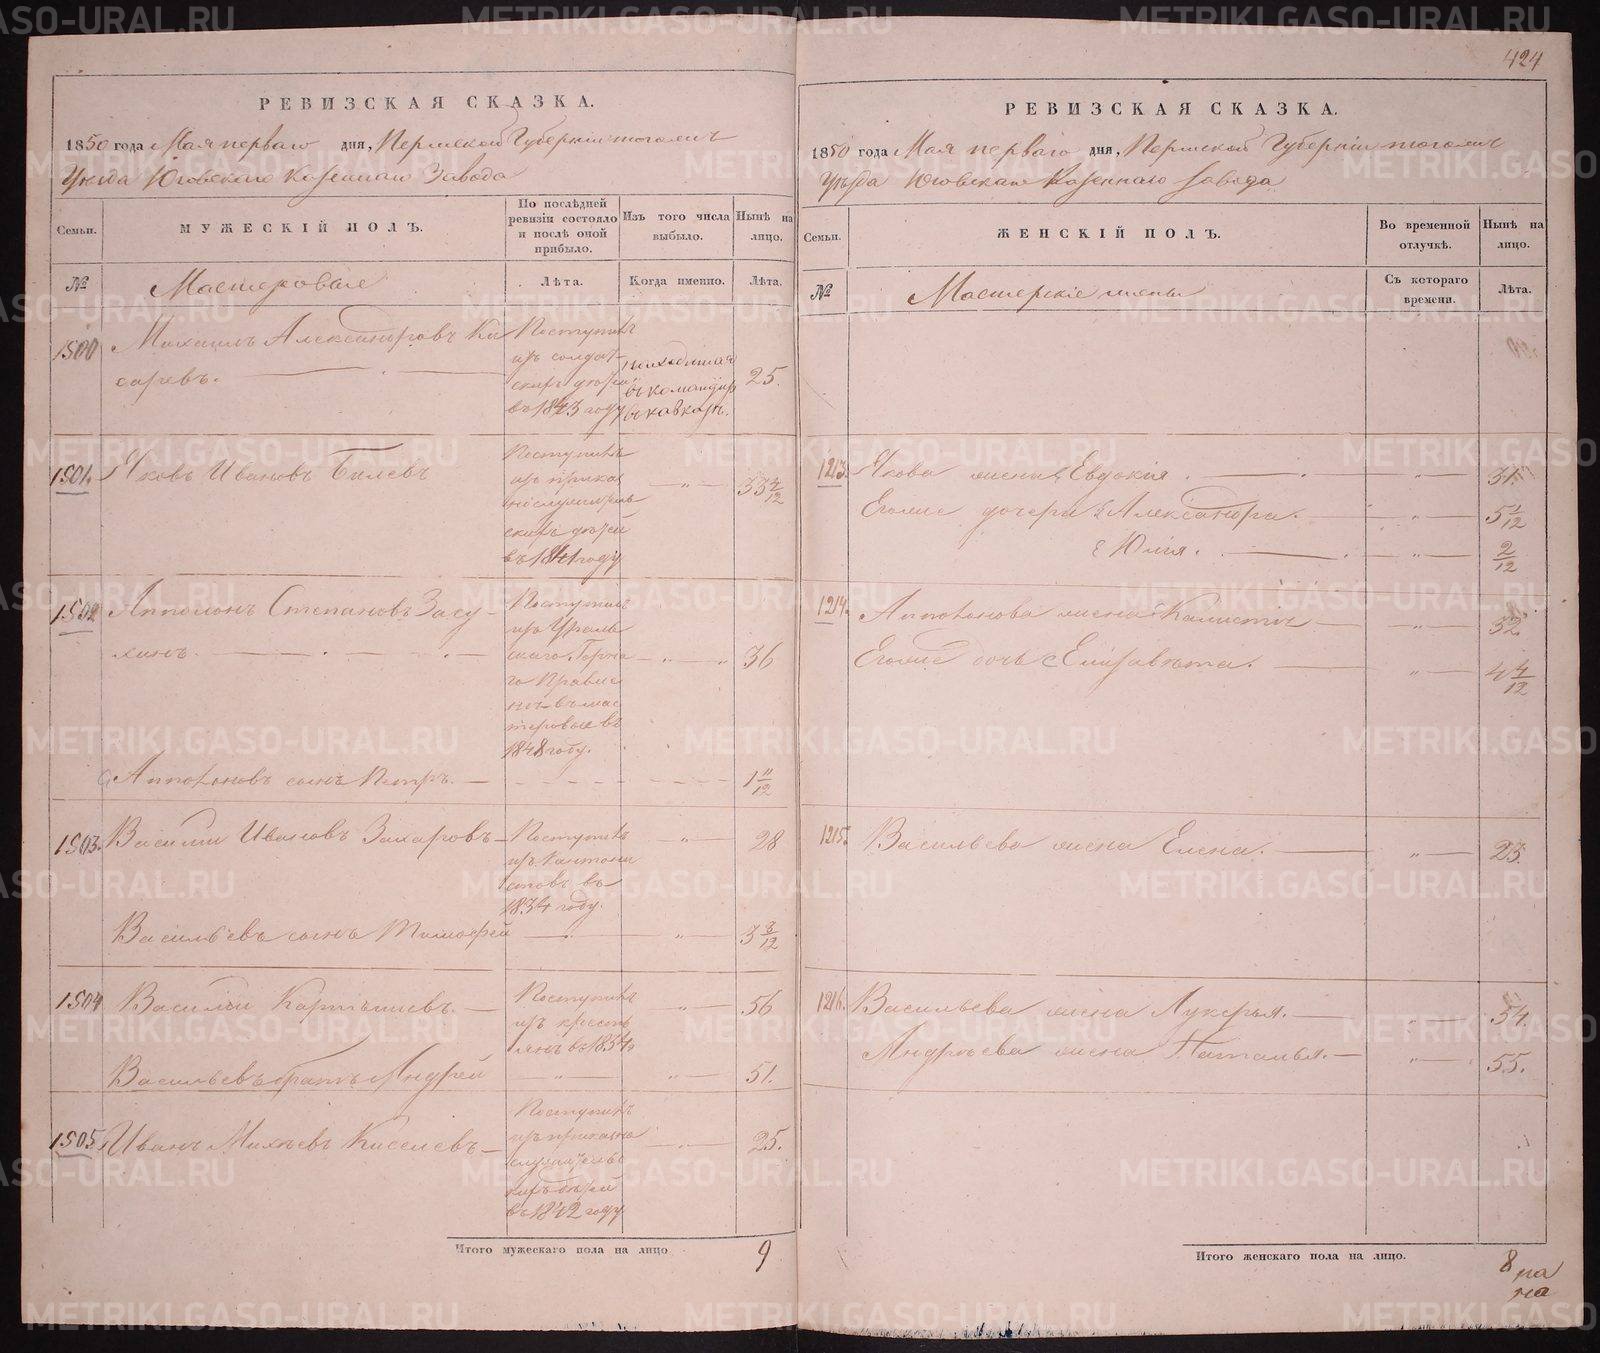 424
РЕВИЗСКАЯ СКАЗКА.
1850 года Мая перваго дня, Пермской Губернии тогожъ
Уѣзда Юговскаго Казеннаго Завода
Семьи.
МУЖЕСКІЙ ПОЛЪ.
По послѣдней ревизіи состояло и послѣ оной прибыло.
Изъ того числа выбыло.
Нынѣ на лицо.
№
Мастеровые
Лѣта.
Когда именно.
Лѣта.
1500 Михаилъ Александровъ Ки
саревъ.
Поступилъ
изъ солдат
скихъ дѣтей
въ 1843 году
находится
въ командир
въ кавказъ.
25.
1501. Яковъ Ивановъ Билевъ
Поступилъ
изъ приказ
нослужитель
скихъ дѣтей
въ 1841 году
33 4/12
1502 Апполонъ Степановъ Засу
хинъ.
Поступилъ
изъ Ураль
скаго Горна
го Правле
нія въ мас
теровые въ
1848 году.
36
Апполоновъ сынъ Петръ. 1 11/12
1503. Василий Ивановъ Захаровъ
Поступилъ
изъ Кантони
стовъ въ
1834 году.
28
Васильевъ сынъ Тимофей 3 3/12
1504 Василий Картышевъ.
Поступилъ
изъ кресть
янъ въ 1834
56
Васильевъ братъ Андрей 51.
1505. Иванъ Михѣевъ Киселевъ
Поступилъ
изъ приказно
служительс
кихъ дѣтей
въ 1842 году
25.
Итого мужескаго пола на лицо 9
РЕВИЗСКАЯ СКАЗКА.
1850 года Мая перваго дня, Пермской Губернии тогожъ
Уѣзда Юговскаго Казеннаго завода
Семьи.
ЖЕНСКІЙ ПОЛЪ.
Во временной отлучкѣ.
Нынѣ на лицо.
№
Мастерскіе жены
Съ котораго времени.
Лѣта.
1213. Якова жена Евдокія 31.
Егоже дочери Александра. 5 1/12
Юлія. 2/12
1214. Апполонова жена 32.
Егоже дочь Елизавета. 4 4/12
1215. Васильева жена Елена. 23.
1216. Васильева жена Лукерья. 54.
Андреева жена Наталья. 55.
Итого женскаго пола на лицо. 8
METRIKI.GASO-URAL.RU